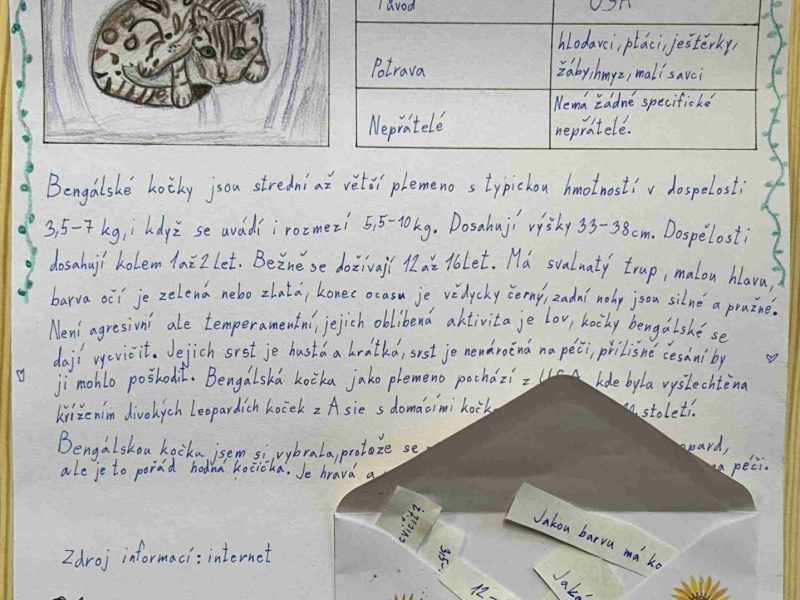 Původ USA
Potrava hlodavci, ptáci, ještěrky,
žáby, hmyz, malí savci
Nepřátelé Nemá žádné specifické
nepřátelé.
Bengálské kočky jsou střední až větší plemeno s typickou hmotností v dospelosti
3,5-7 kg, i když se uvádí i rozmezí 5,5-10 kg. Dosahují výšky 33-38cm. Dospělosti
dosahují kolem 1 až 2 let. Bežně se dožívají 12 až 16 let. Má svalnatý trup, malou hlavu,
barva očí je zelená nebo zlatá, konec ocasu je vždycky černý, zadní nohy jsou silné a pružné.
Není agresivní ale temperamentní, jejich oblíbená aktivita je lov, kočky bengálské se
dají vycvičit. Jejich srst je hustá a krátká, srst je nenáročná na péči, přílišné česání by
ji mohlo poškodit. Bengálská kočka jako plemeno pochází z USA, kde byla vyšlechtěna
křížením divokých leopardích koček z Asie s domácími kočk století.
Bengálskou kočku jsem si vybrala, protože se pard,
ale je to pořád hodná kočička. Je hravá a na péči.
Zdroj informací: internet
cvičit?
3,5-
12-
Jakou barvu má ko
Jaká